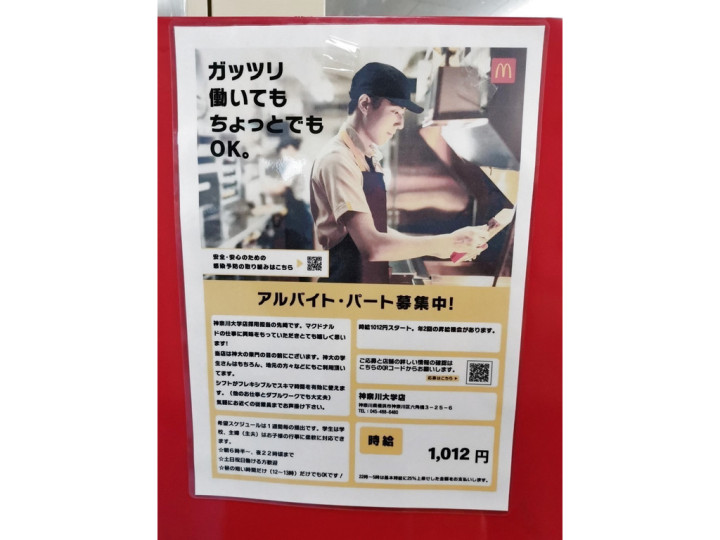 ガッツリ
働いても
ちょっとでも
OK。
安全・安心のための
感染予防の取り組みはこちら
アルバイト・パート募集中!
神奈川大学店採用担当の先崎です。マクドナル
ドの仕事に興味をもっていただきとても嬉しく思い
ます!
当店は神大の正門の目の前にございます。神大の学
生さんはもちろん、地元の方々などにもご利用頂い
てます。
シフトがフレキシブルでスキマ時間を有効に使えま
す。(他のお仕事とダブルワークでも大丈夫)
気軽にお近くの従業員までお声掛け下さい。
希望スケジュールは1週間毎の提出です。学生は学
校、主婦(主夫)はお子様の行事に柔軟に対応でき
ます。
☆朝6時半~、夜22時頃まで
☆土日祝日働ける方歓迎
☆昼の短い時間だけ(12~13時)だけでもOKです!
時給1012円スタート。年2回の昇給機会があります。
ご応募と店舗の詳しい情報の確認は
こちらのQRコードからお願いします。
応募はこちら
神奈川大学店
神奈川県横浜市神奈川区六角橋3-25-6
TEL:045-488-0480
時給
1,012 円
22時~5時は基本時給に25%上乗せした金額をお支払いします。